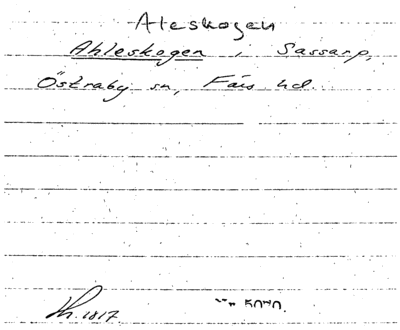 Aleskogen
Ahleskogen, Sassarp,
Östraby sn, Färs hd.
Lh. 1817